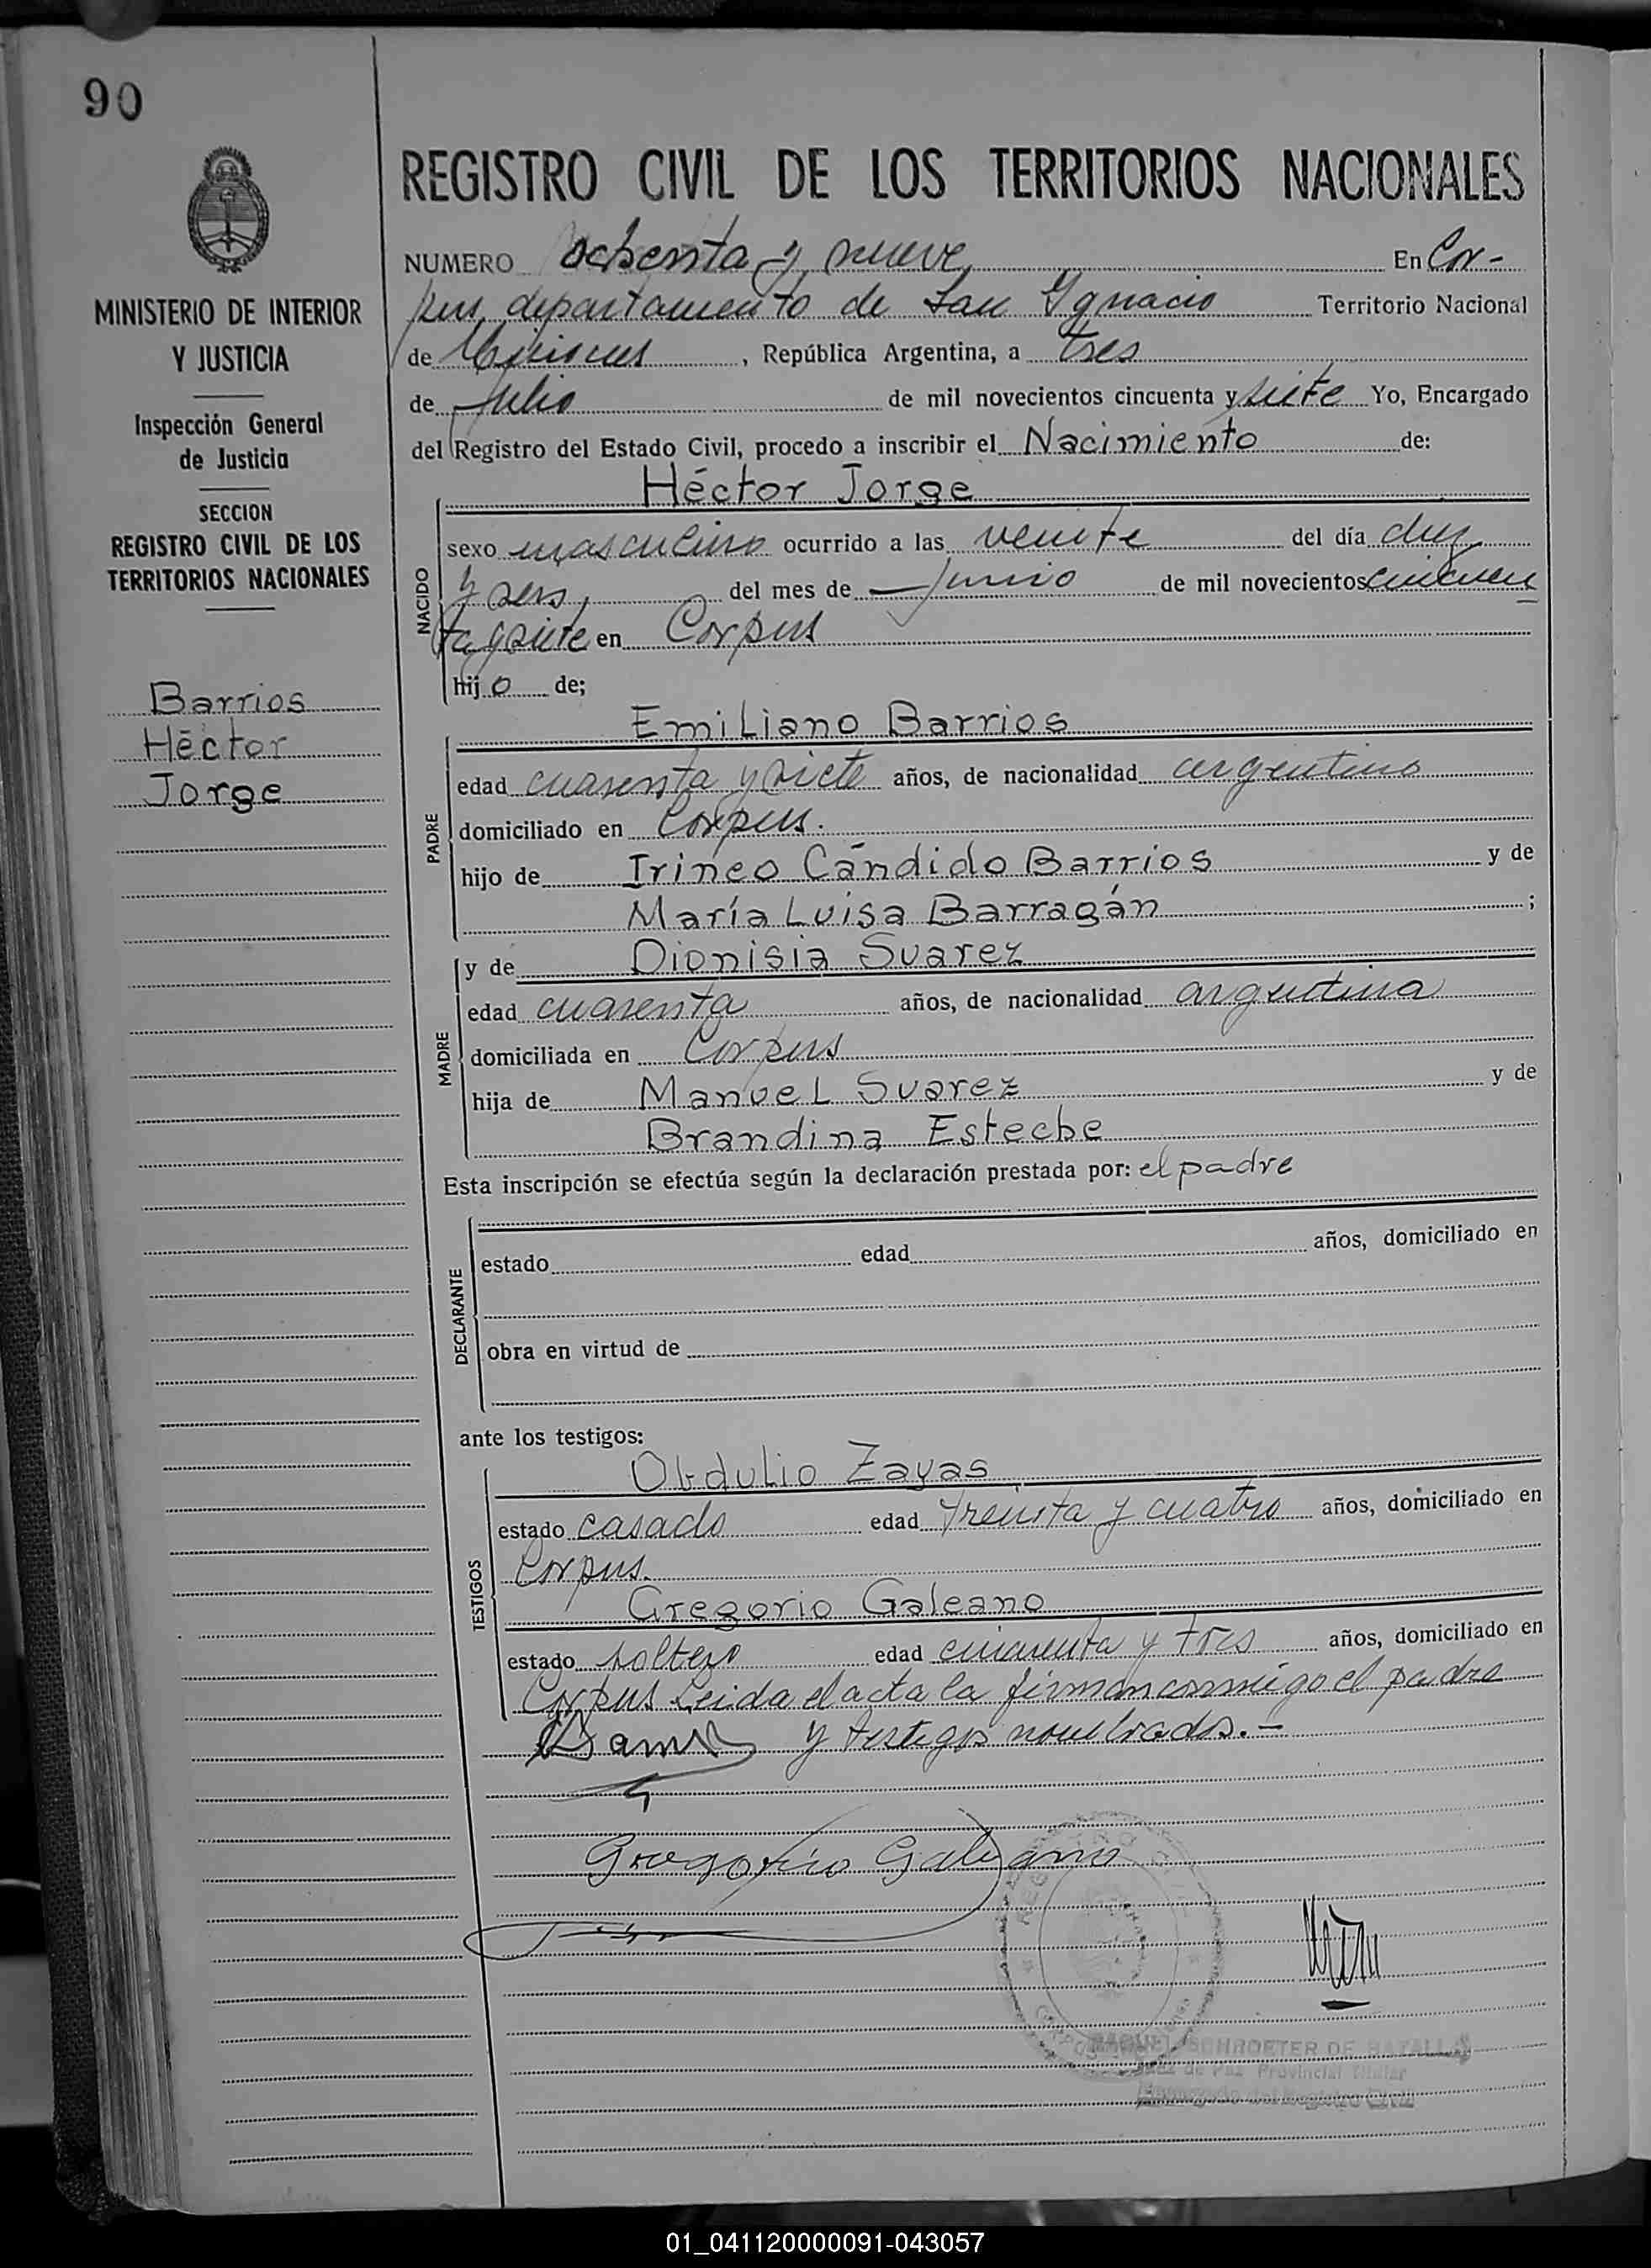 90
REGISTRO CIVIL DE LOS TERRITORIOS NACIONALES
MINISTERIO DE INTERIOR
Y JUSTICIA
Inspección General
de Justicia
SECCION
REGISTRO CIVIL DE LOS
TERRITORIOS NACIONALES
Barrios
Héctor
Jorge
NUMERO ochenta y nueve En Cor-
pus, departamento de San Ygnacio Territorio Nacional
de Misiones, República Argentina, a tres
de Julio de mil novecientos cincuenta y siete Yo, Encargado
del Registro del Estado Civil, procedo a inscribir el Nacimiento de:
Héctor Jorge
NACIDO
sexo masculino ocurrido a las veinte del día diez
y seis, del mes de Junio de mil novecientos cincuen
ta y siete en Corpus
hijo de;
Emiliano Barrios
PADRE
edad cuarenta y siete años, de nacionalidad argentino
domiciliado en Corpus.
hijo de Irineo Cándido Barrios y de
María Luisa Barragán ;
y de Dionisia Suarez
MADRE
edad cuarenta años, de nacionalidad argentina
domiciliada en Corpus
hija de Manuel Suarez y de
Brandina Esteche
Esta inscripción se efectúa según la declaración prestada por: el padre
DECLARANTE
estado edad años, domiciliado en
obra en virtud de
ante los testigos:
Obdulio Zayas
TESTIGOS
estado casado edad treinta y cuatro años, domiciliado en
Corpus.
Gregorio Galeano
estado soltero edad cuarenta y tres años, domiciliado en
Corpus Leida el acta la firman conmigo el padre
y testigos nombrados.-
Gregorio Galeano
RAQUEL SCHROETER DE BATALLA
Juez de Paz Provincial Titular
Encargado del Registro Civil
01_041120000091-043057